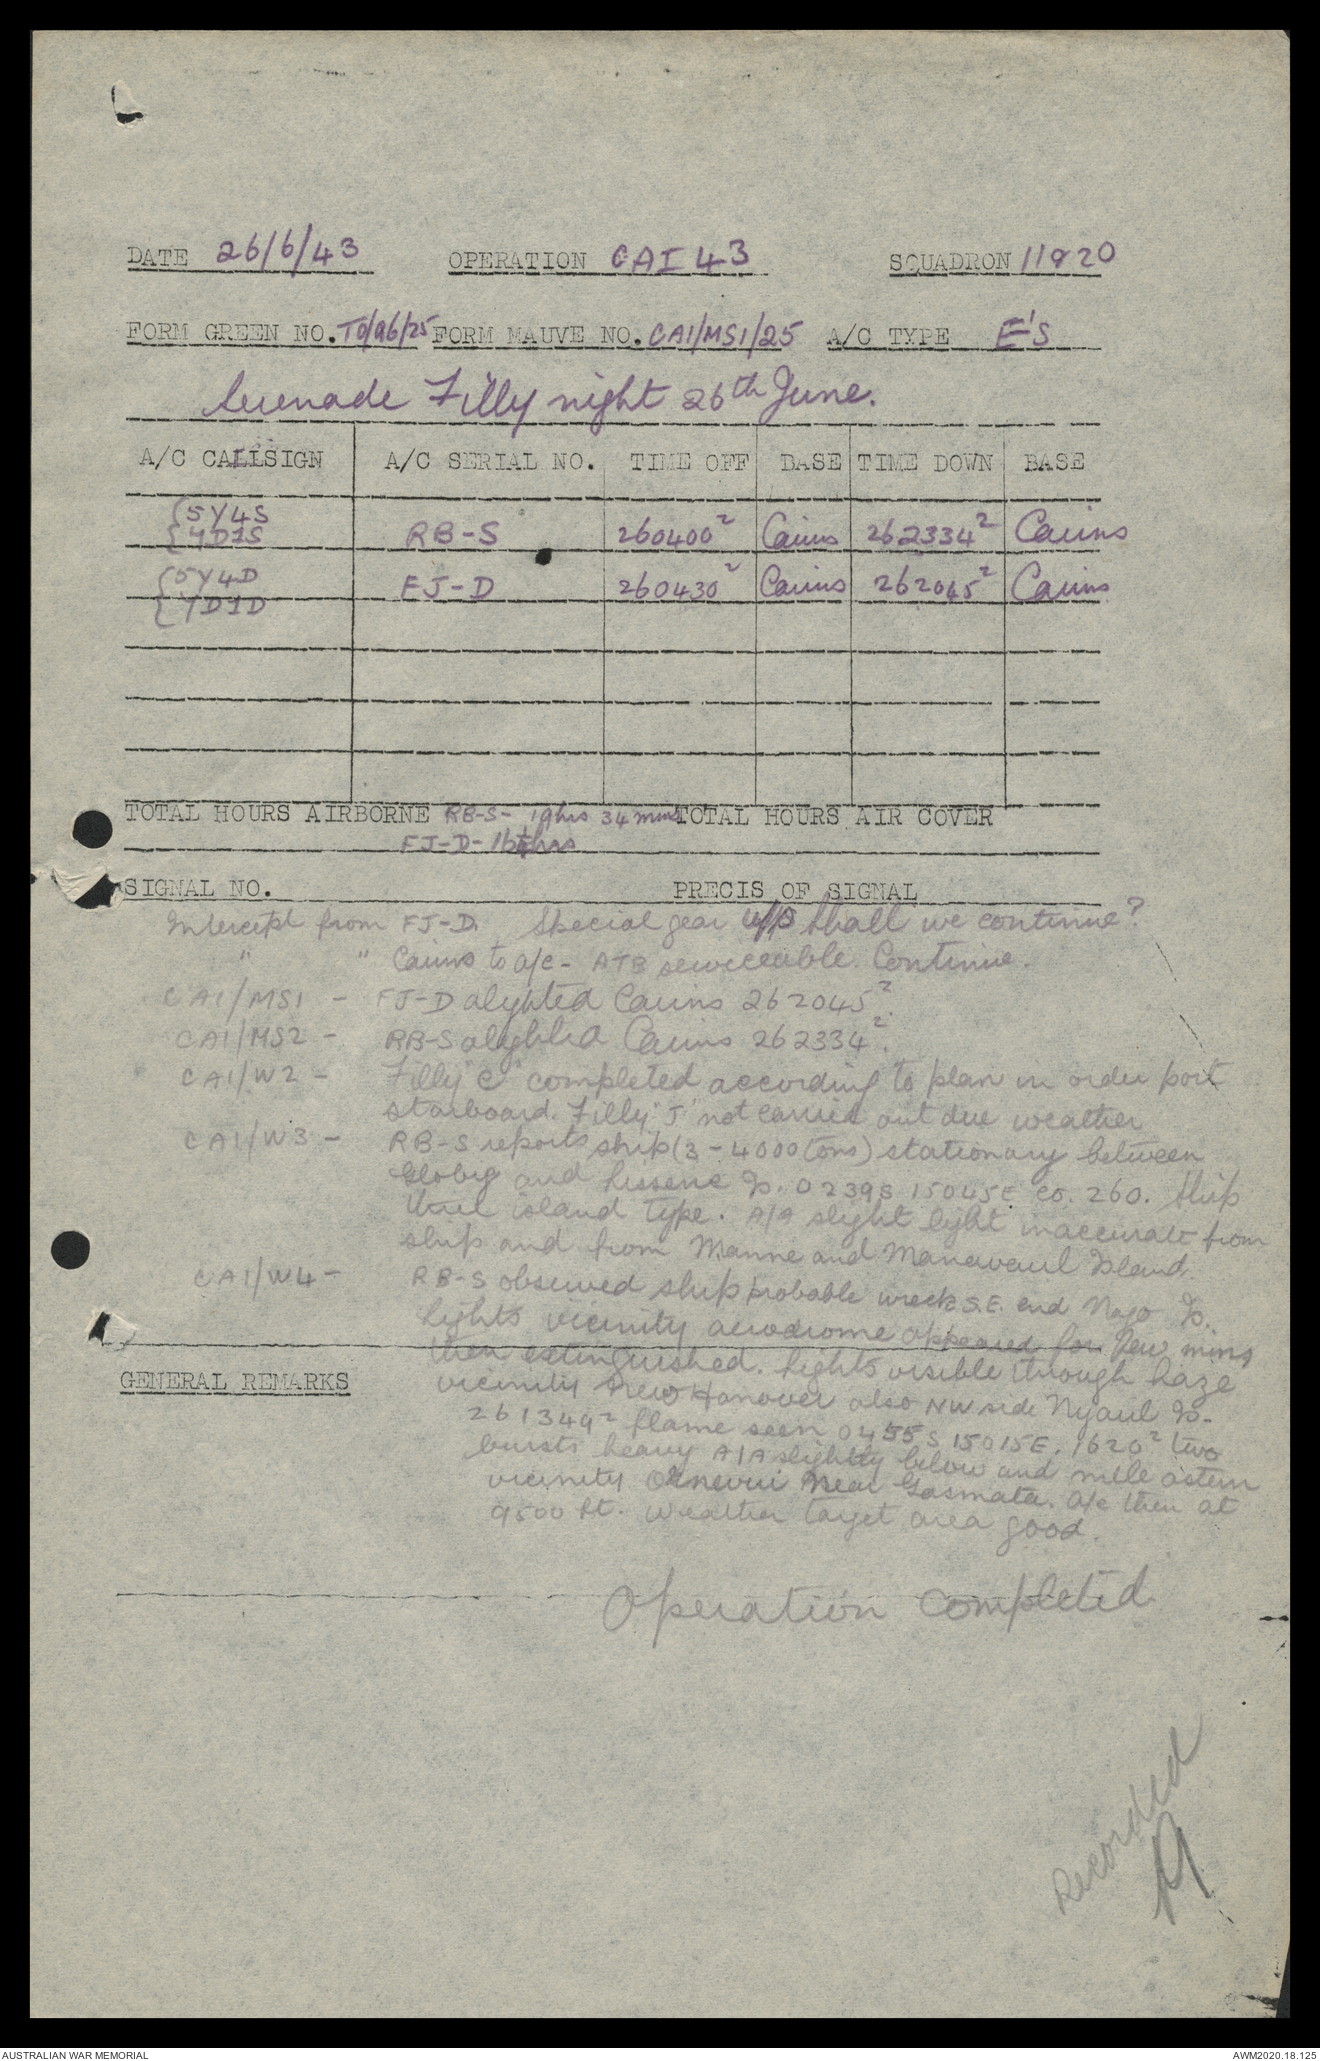 DATE 26/6/43 OPERATION CAI 43 SQUADRON 11 & 20
FORM GREEN NO. FORM MAUVE NO. CAI/MS1/25 A/C TYPE E'S
Serenade Filly night 26th June.
A/C CALLSIGN A/C SERIAL NO. TIME OFF BASE TIME DOWN BASE
5Y4S
7D1S RB-S 260400Z Cairns 262334Z Cairns
5Y4D
7D1D FJ-D 260430Z Cairns 262045Z Cairns
TOTAL HOURS AIRBORNE RB-S- 19hrs 34 mins TOTAL HOURS AIR COVER
FJ-D- 16¼hrs
SIGNAL NO. PRECIS OF SIGNAL
Intercept from FJ-D. Special gear u/s Shall we continue?
" " Cairns to a/c - ATB serviceable. Continue.
CAI/MS1 - FJ-D alighted Cairns 262045Z.
CAI/MS2 - RB-S alighted Cairns 262334Z.
CAI/W2 - Filly "C" completed according to plan in order port
starboard. Filly "J" not carried out due weather
CAI/W3 - RB-S reports ship (3-4000 tons) stationary between
and Lissenc Is. 0239S 15045E co. 260. Ship
three island type. A/A slight light inaccurate from
ship and from Manne and Manavaul Island.
CAI/W4 - RB-S observed ship probable wreck S.E. end Nago Is.
Lights vicinity aerodrome appeared for few mins
then extinguished. Lights visible through haze
GENERAL REMARKS
vicinity New Hanover also NW side Nyaul Is.
261349Z flame seen 0455S 15015E. 1620Z two
bursts heavy A/A slightly below and mile astern
vicinity near Gasmata. A/c then at
9500 ft. Weather target area good.
Operation Completed
Recorded
AUSTRALIAN WAR MEMORIAL AWM2020.18.125